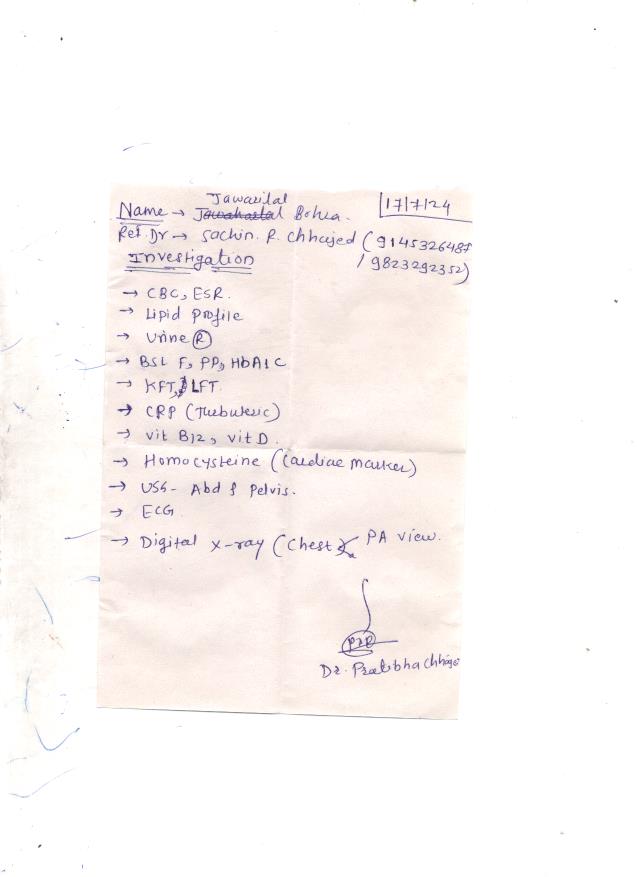 Jawarilal
Name → Bohra.
17/7/24
Ref. Dr → Sachin. R. Chhajed (9145326487
/ 9823292352)
Investigation
→ CBC, ESR.
→ Lipid Profile
→ Urine (R)
→ BSL F, PP, HbA1C
→ KFT, LFT.
→ CRP (Turbuteric)
→ vit B12, vit D.
→ Homocysteine (Cardiac marker)
→ USG - Abd & Pelvis.
→ ECG.
→ Digital x-ray (Chest) PA view.
Dr. Pratibha Chhajed